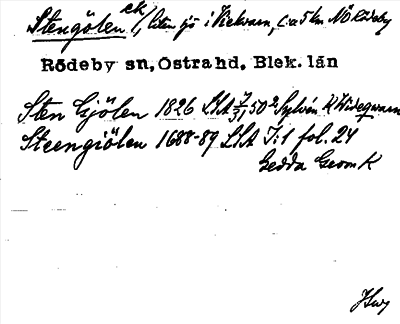 Stengölen ek/, liten sjö i Kvarn, c:a 5 km NÖ Rödeby
Rödeby sn, Östra hd, Blek. län
Sten Gjölen 1826 LSA 7/31, 50² Sylvén K
Steengiölen 1688-89 LSA I:1 fol. 24
Gedda Geom K